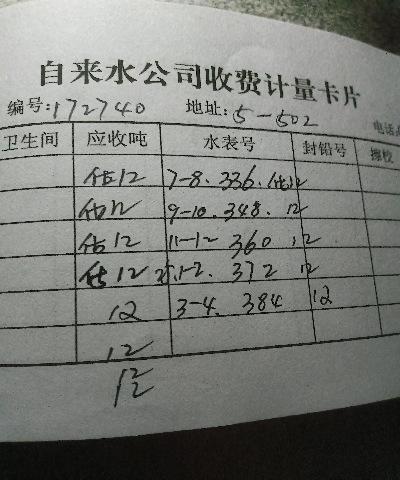 自来水公司收费计量卡片
编号:172740 地址:5-502 电话
卫生间 应收吨 水表号 封铅号 擦校
估12 7-8. 336. 估12
估12 9-10. 348. 12
估12 11-12 360 12
估12 1-2. 372 12
12 3-4. 384 12
12
12